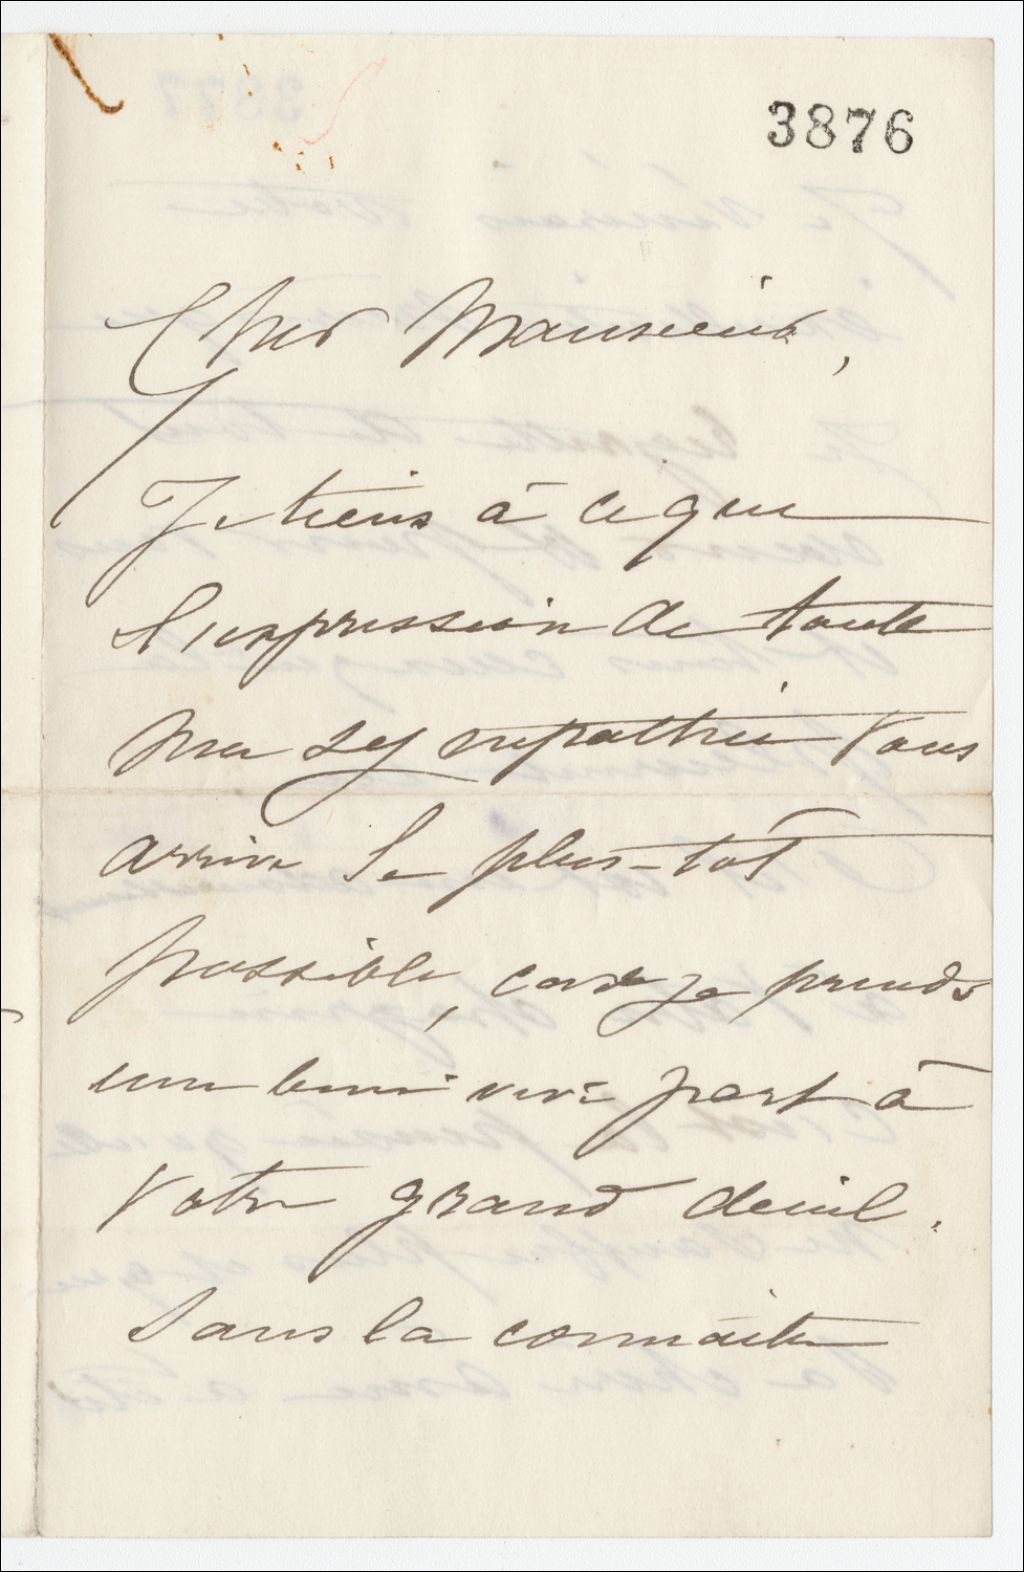 3876
Cher Monsieur,
Je tiens à ce que
l'expression de toute
ma sympathie vous
arrive le plus-tôt
possible, car je prends
une bien vive part à
votre grand deuil.
Sans la connaitre